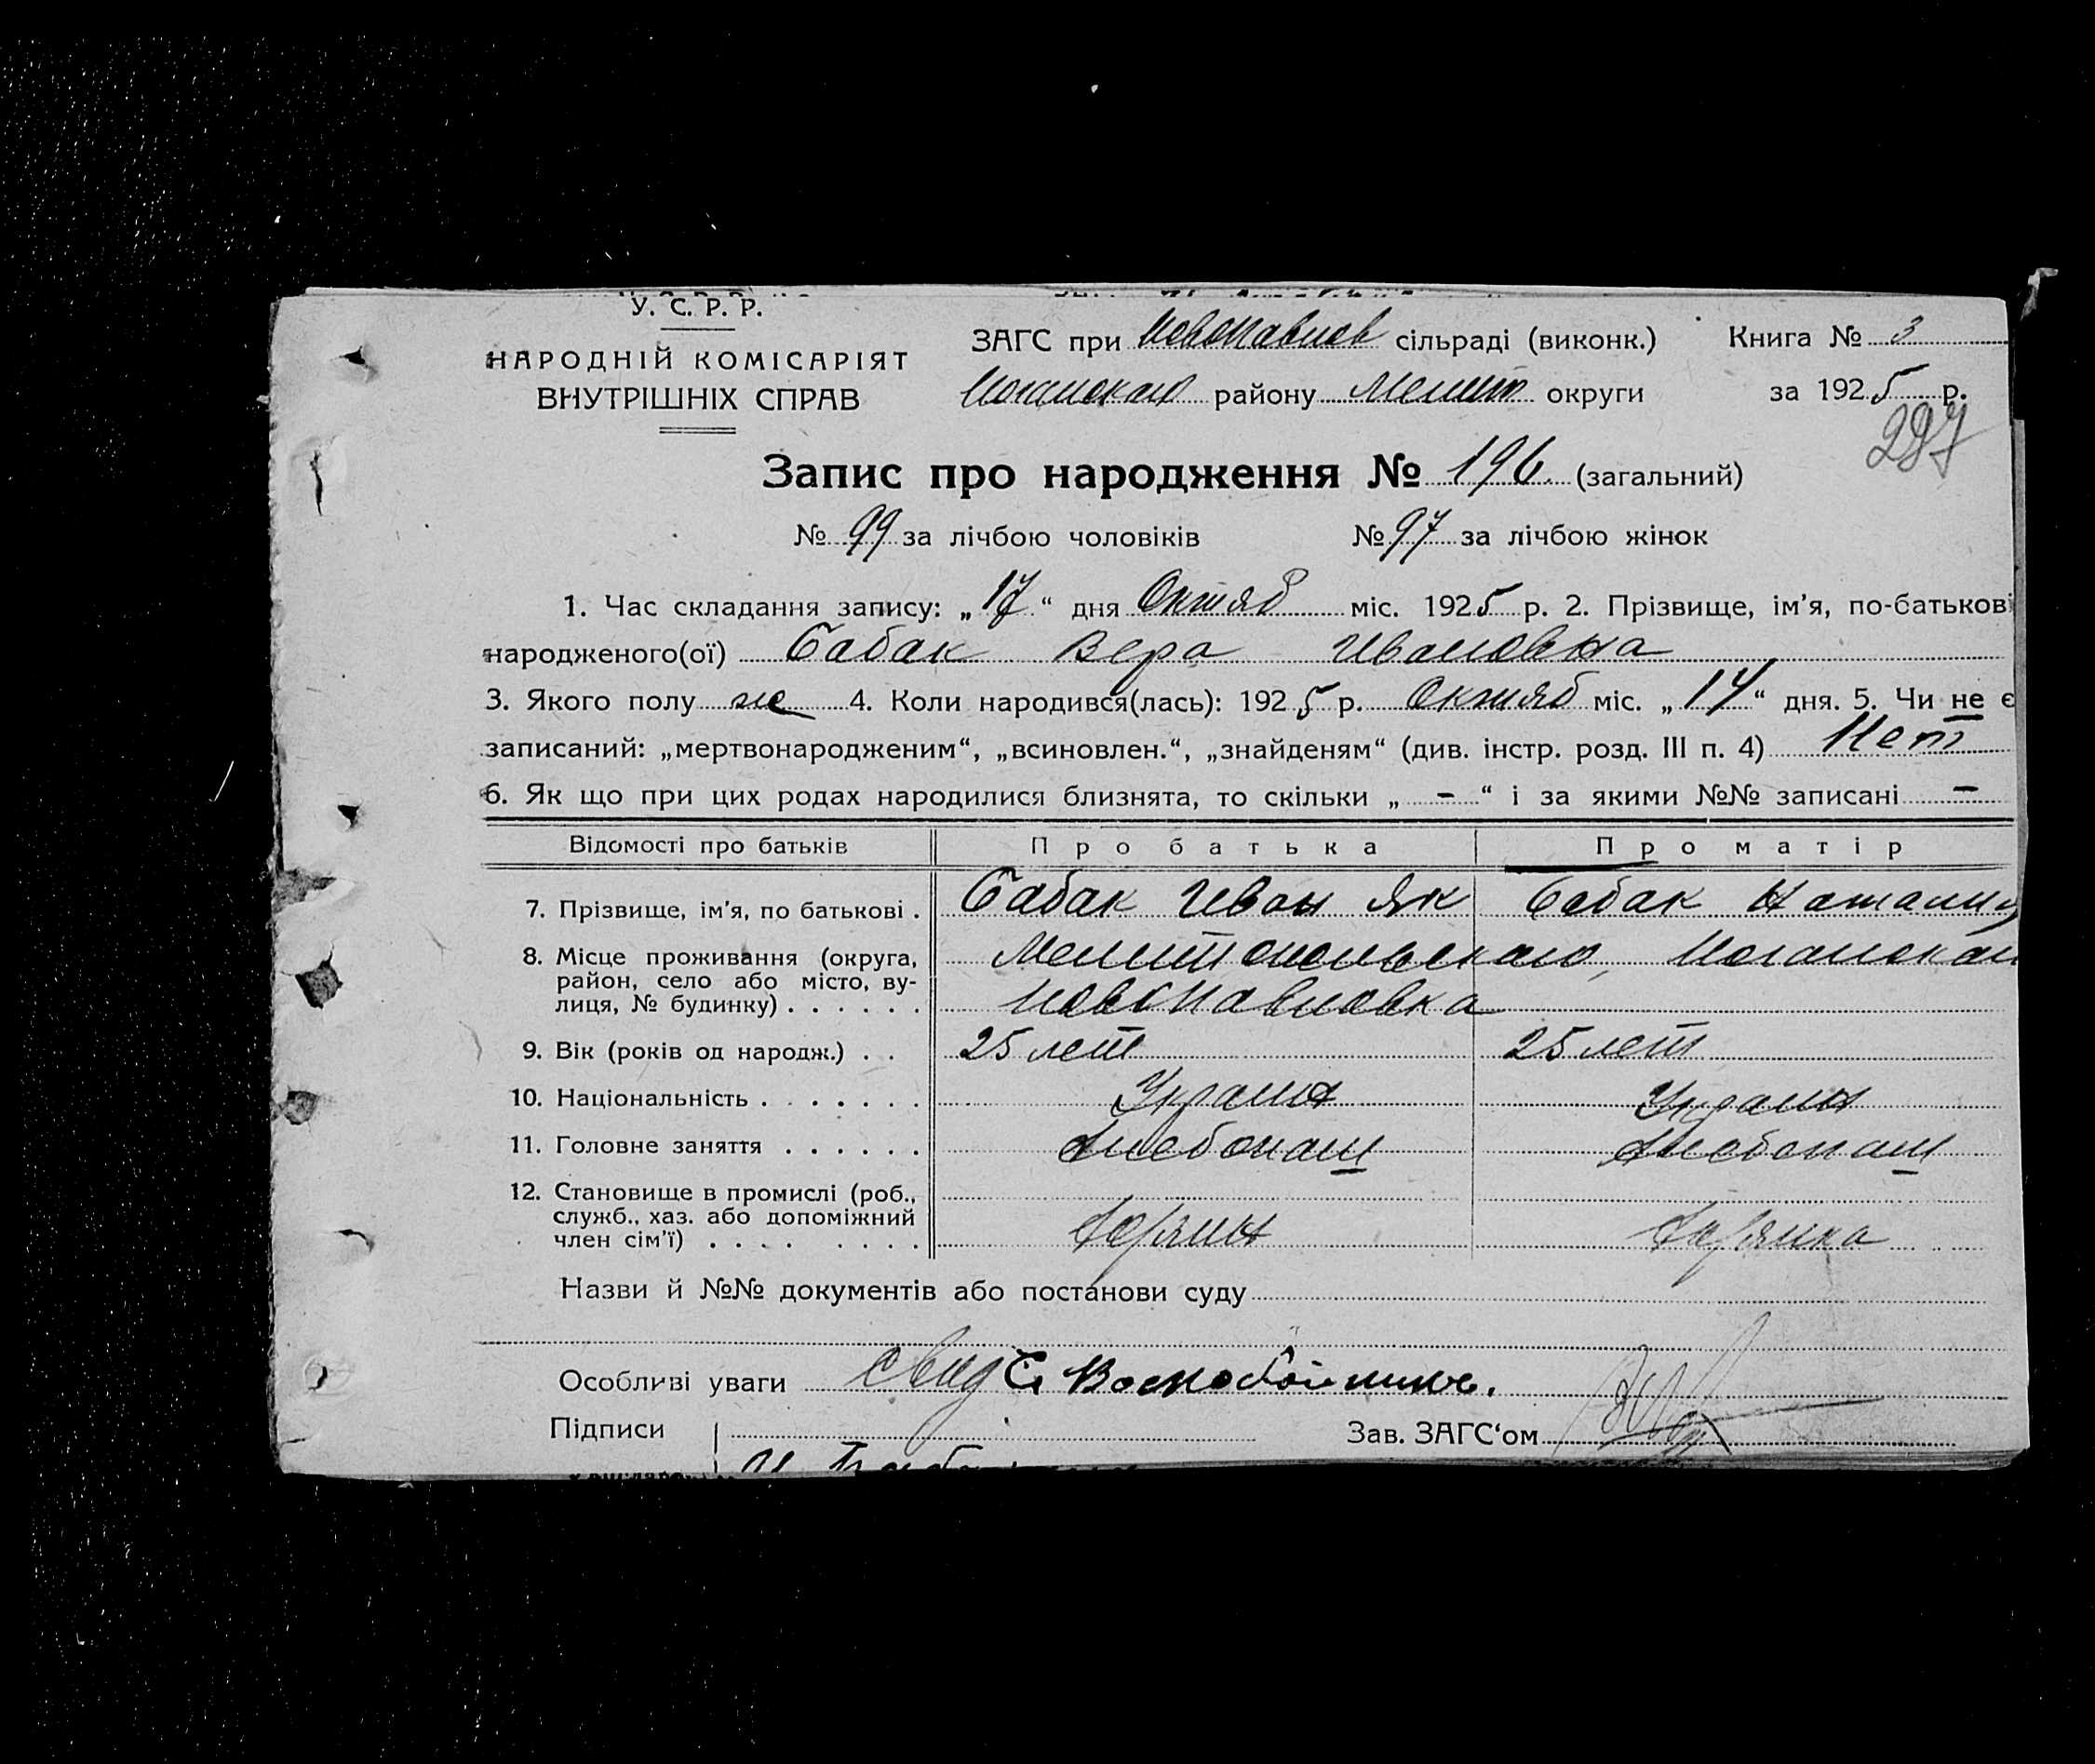 У. С. Р. Р.
НАРОДНІЙ КОМІСАРІЯТ
ВНУТРІШНІХ СПРАВ
ЗАГС при Новопавлов сільраді (виконк.) Книга № 3
Ногайского району Мелит округи за 1925 р.
297
Запис про народження № 196 (загальний)
№ 99 за лічбою чоловіків № 97 за лічбою жінок
1. Час складання запису: „17“ дня Октяб міс. 1925 р. 2. Прізвище, ім’я, по-батькові
народженого(ої) Бабак Вера Ивановна
3. Якого полу же 4. Коли народився(лась): 1925 р. Октяб міс. „14“ дня. 5. Чи не є
записаний: „мертвонародженим“, „всиновлен.“, „знайденям“ (див. інстр. розд. III п. 4) Нет
6. Як що при цих родах народилися близнята, то скільки „ - “ і за якими №№ записані -
Відомості про батьків Про батька Про матір
7. Прізвище, ім’я, по батькові . Бабак Иван Як Бабак Наталия
8. Місце проживання (округа, Мелитопольского, Ногайском
район, село або місто, ву-
лиця, № будинку) . . . . . . Новопавловка
9. Вік (років од народж.) . . 25 лет 25 лет
10. Національність . . . . . . . Украин Украин
11. Головне заняття . . . . . . Хлебопаш Хлебопаш
12. Становище в промислі (роб.,
служб., хаз. або допоміжний
член сім’ї) . . . . . . . .
Назви й №№ документів або постанови суду
Особливі уваги свид
Підписи Зав. ЗАГС‘ом